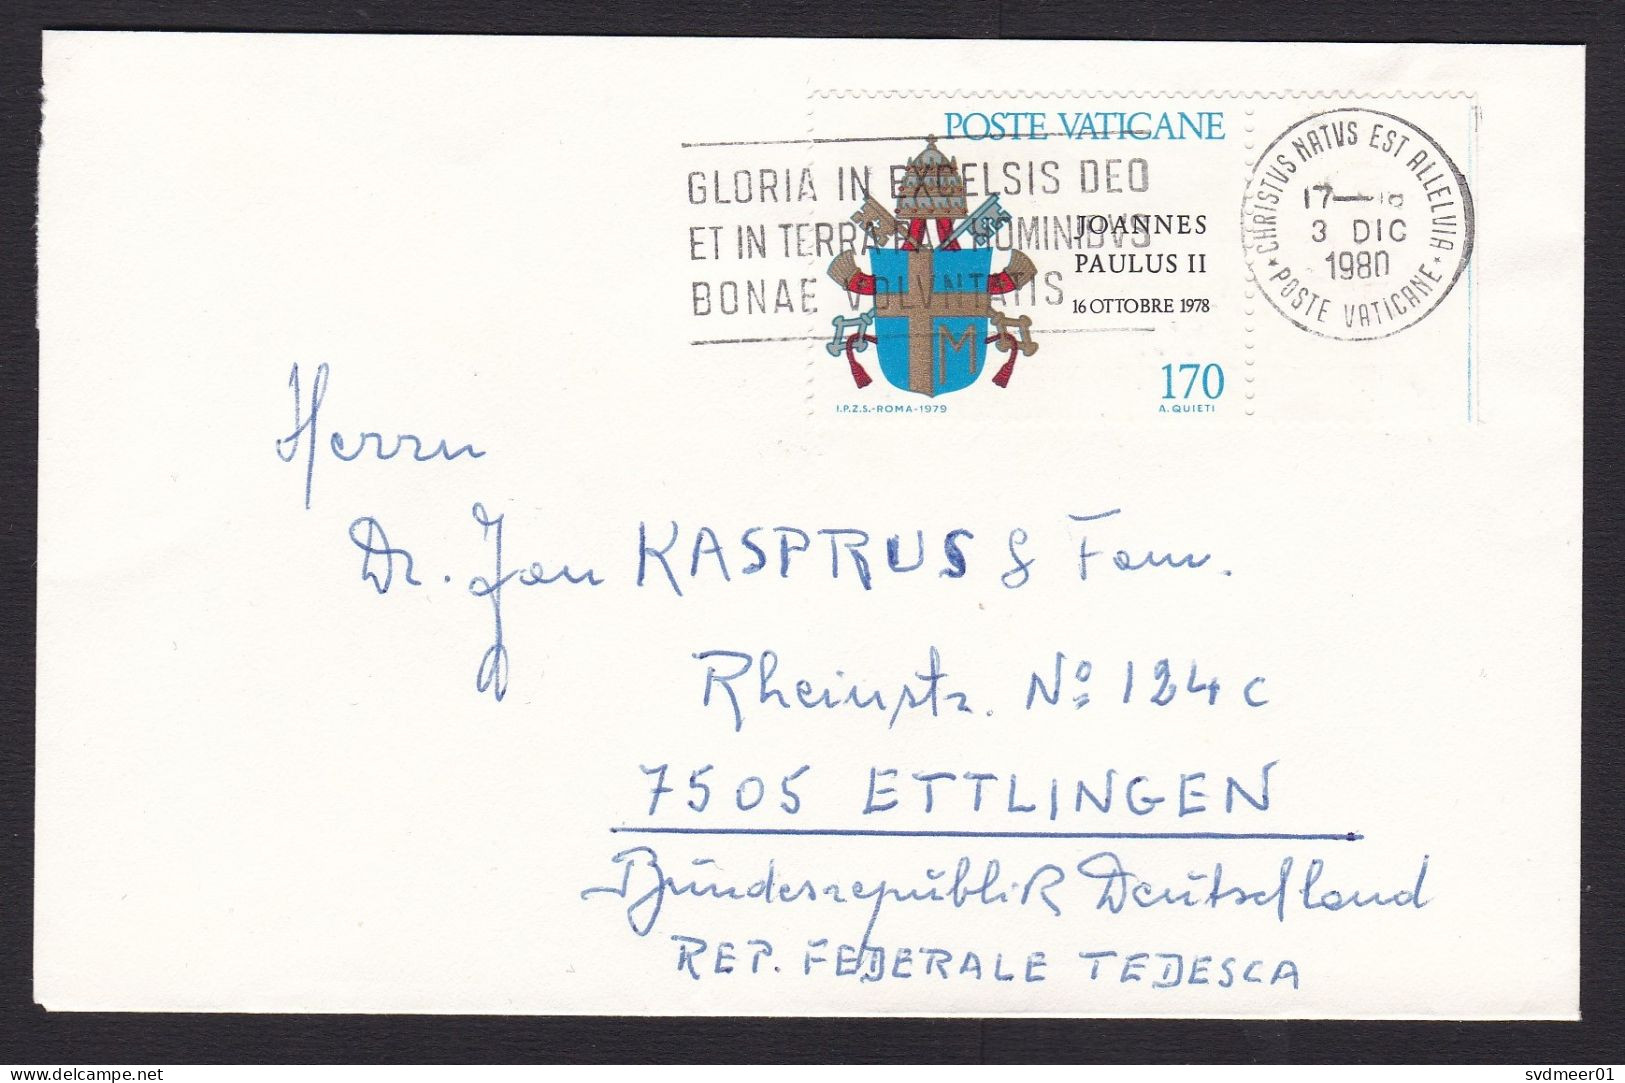 POSTE VATICANE
GLORIA IN EXCELSIS DEO
ET IN TERRA PAX HOMINIBVS
BONAE VOLVNTATIS
JOANNES
PAULUS II
16 OTTOBRE 1978
170
I.P.Z.S.-ROMA-1979
A. QUIETI
CHRISTVS NATVS EST ALLELVIA
17-18
3 DIC
1980
* POSTE VATICANE *
Herrn
Dr. Jan KASPRUS & Fam.
Rheinstr. Nº 124 c
7505 ETTLINGEN
Bundesrepublik Deutschland
REP. FEDERALE TEDESCA
delcampe.net
svdmeer01